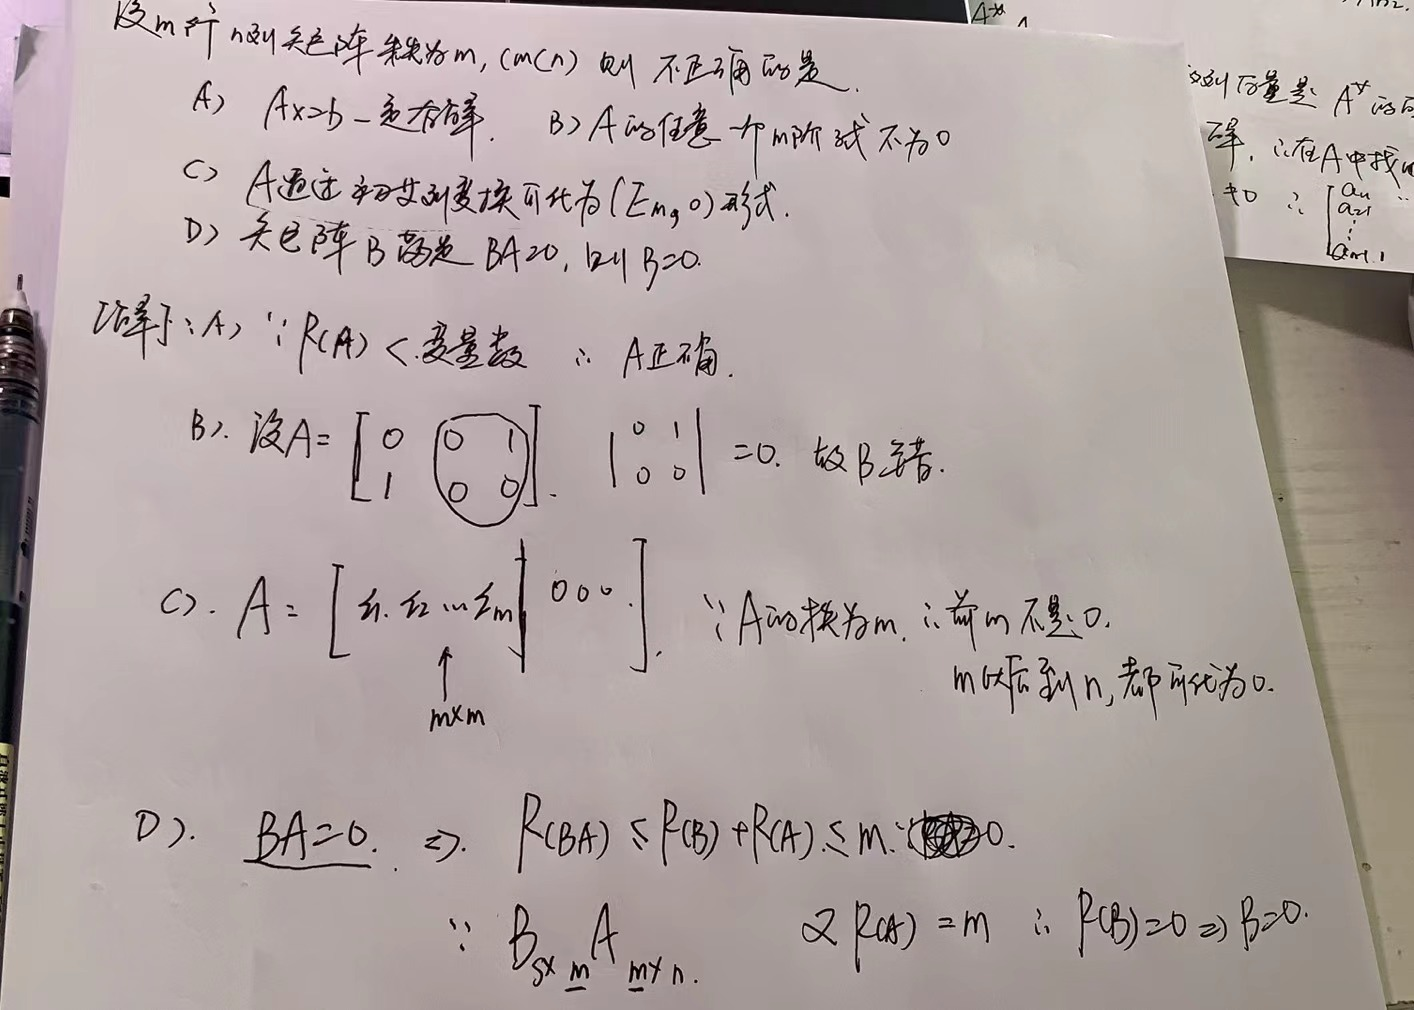 设m行n列矩阵秩为m,(m<n)则不正确的是.
A) Ax=b一定有解. B) A的任意一个m阶式不为0
C) A通过初等列变换可化为(Em,0)形式.
D) 矩阵B满足BA=0,则B=0.
[解]:A) ∵R(A)<变量数 ∴A正确.
B). 设A=[0 0 1
1 0 0]. |0 1
0 0|=0. 故B错.
C). A=[ε1.ε2…εm|000.]. ∵A的秩为m.∴前m不是0.
m以后到n,都可化为0.
m×m
D). BA=0. ⇒. R(BA)≤R(B)+R(A).≤m. 0.
∵ Bs×m Am×n. 又R(A)=m ∴R(B)=0⇒B=0.
A*
列向量是A*的
解,∴在A中找
≠0 ∴ [a11
a21
⋮